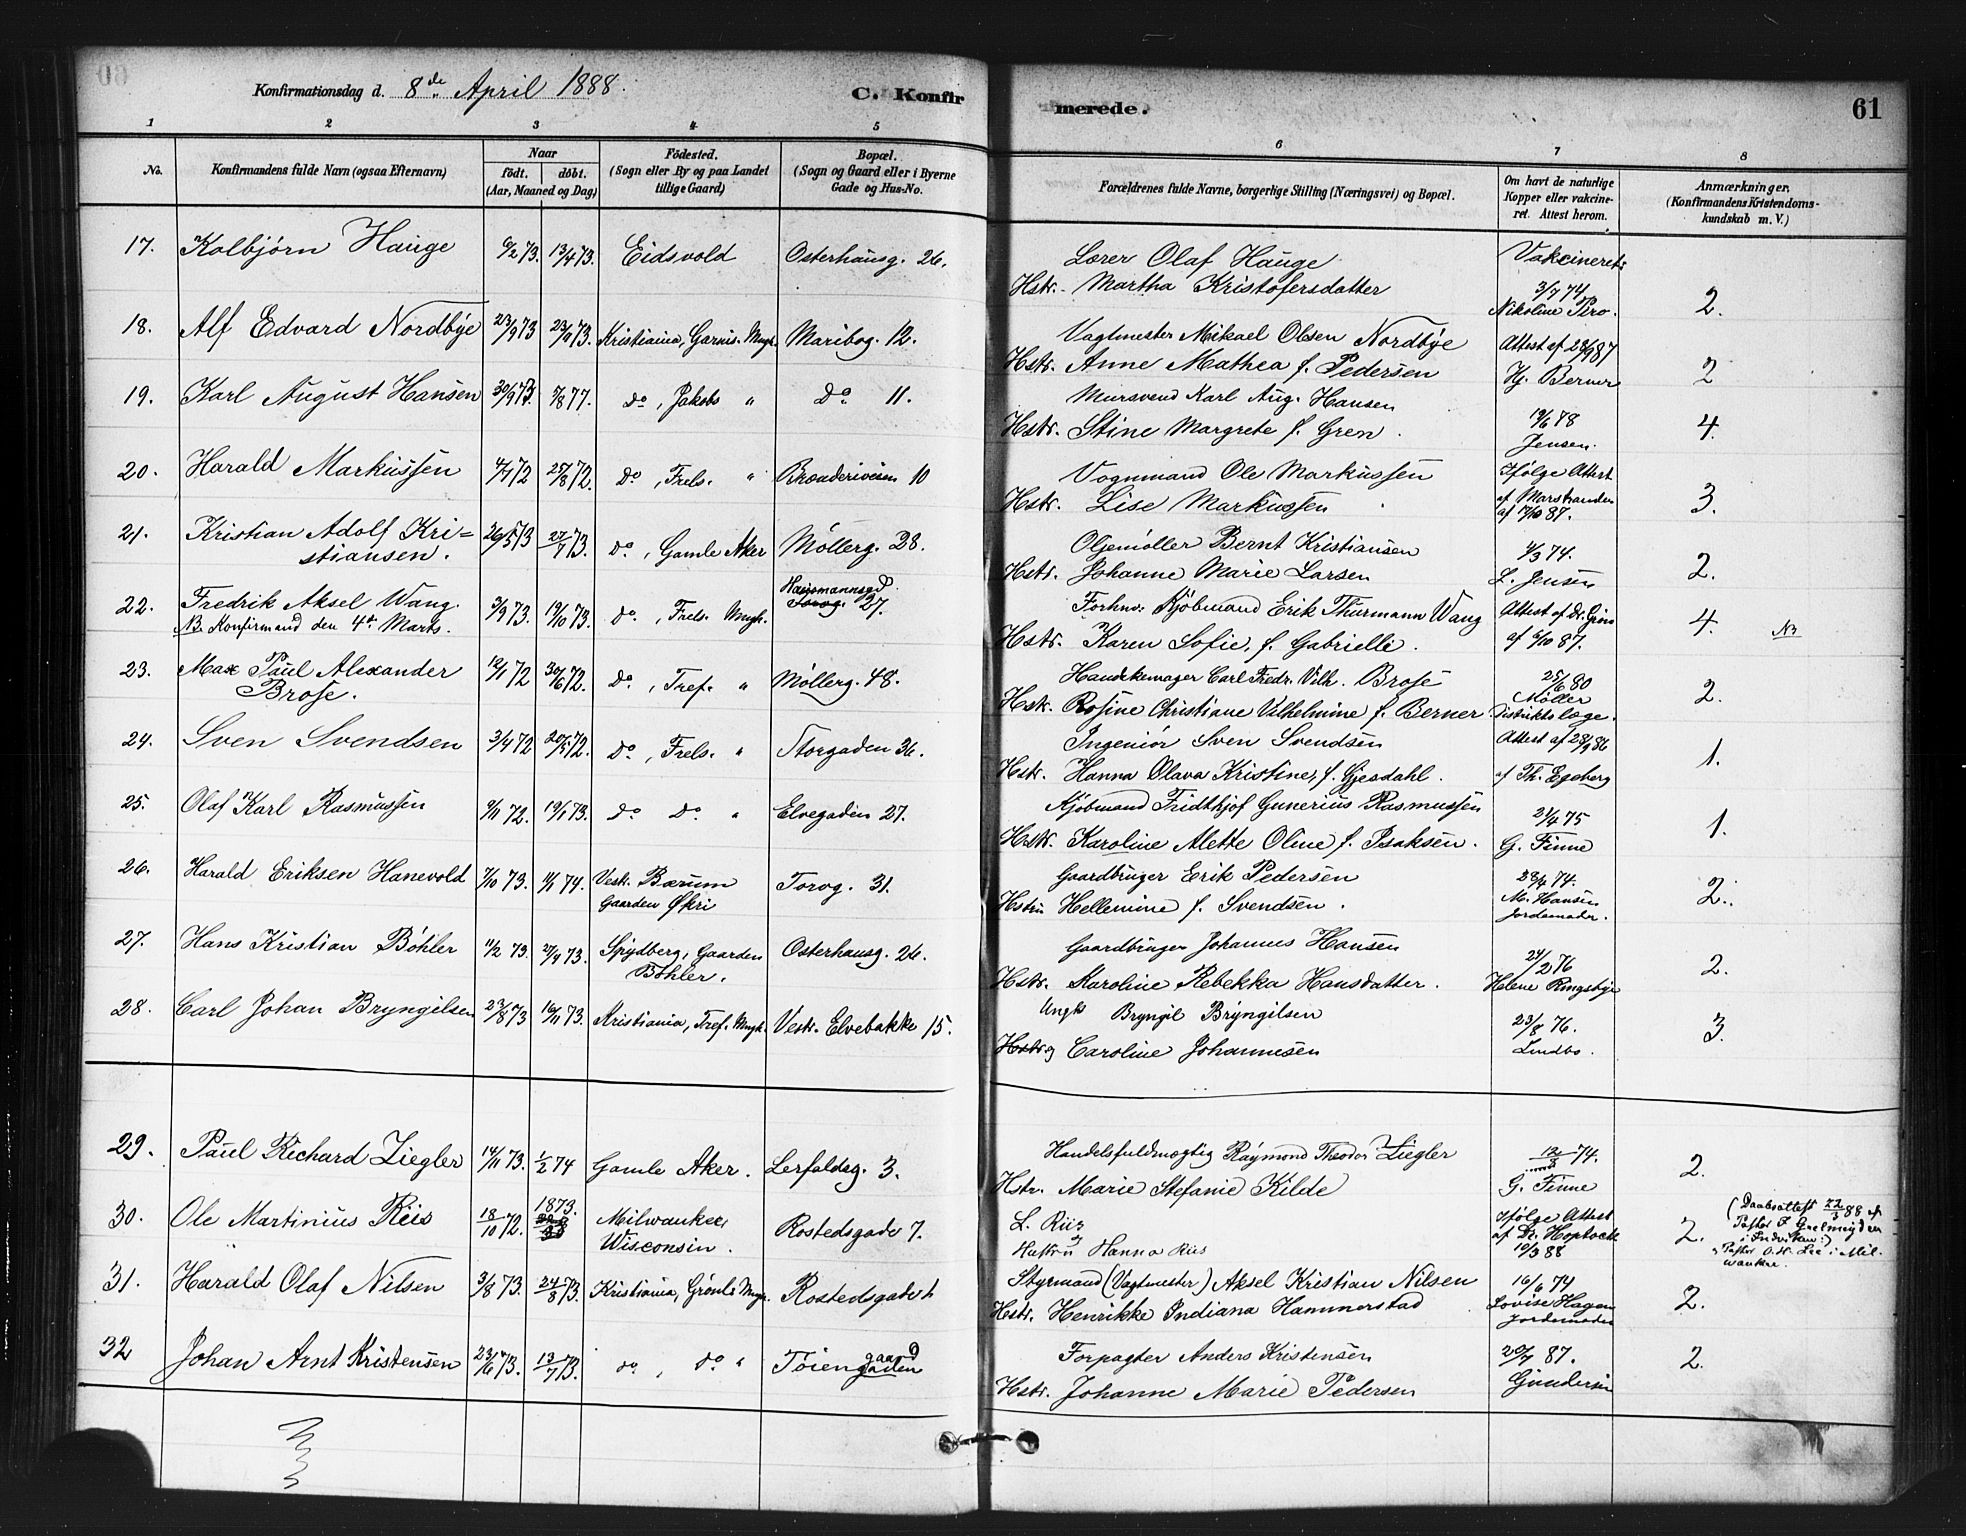 Konfirmationsdag d. 8de April 1888.
C. Konfirmerede.
61
1 2 3 4 5 6 7 8
No.
Konfirmandens fulde Navn (ogsaa Efternavn)
Naar
født. døbt.
(Aar, Maaned og Dag)
Fødested.
(Sogn eller By og paa Landet tillige Gaard)
Bopæl.
(Sogn og Gaard eller i Byerne Gade og Hus-No.
Forældrenes fulde Navne, borgerlige Stilling (Næringsvei) og Bopæl.
Om havt de naturlige Kopper eller vakcineret. Attest herom.
Anmærkninger.
(Konfirmandens Kristendomskundskab m. V.)
17. Kolbjørn Hauge 6/2 73. 13/4 73. Eidsvold Osterhausg. 26.
Lærer Olaf Hauge Vakcineret
Hstr. Martha Kristofersdatter 3/7 74 Nikoline 2.
18. Alf Edvard Nordbye 23/9 73 23/11 73. Kristiania, Garnis. Mngh. Maribog. 12.
Vagtmester Mikael Olsen Nordbye Attest af 28/9 87
Hstr. Anne Mathea f. Pedersen Hj. Berner 2
19. Karl August Hansen 30/9 73. 7/8 77. do, Jakobs " Do 11.
Mursvend Karl Aug. Hansen
Hstr. Stine Margrete f. Gren. 19/6 78 Jensen. 4.
20. Harald Markussen 4/7 72 25/8 72. Do, Frels. " Brænderiveien 10
Vognmand Ole Markussen Ifølge Attest
Hstr. Lise Markussen af Marstrander af 7/10 87. 3.
21. Kristian Adolf Kristiansen. 26/5 73 27/7 73. do, Gamle Aker Møllerg. 28.
Oljemøller Bernt Kristiansen 4/3 74.
Hstr. Johanne Marie Larsen L. Jensen 2.
22. Fredrik Aksel Wang. 3/9 73. 19/10 73. do, Frels. Mngh. Hausmannsgd. Torvg. 27.
NB. Konfirmand den 4de Marts.
Forhnv. Kjøbmand Erik Thurmann Wang Attest af Dr.
Hstr. Karen Sofie, f. Gabrielli. af 6/10 87. 4. NB
23. Max Paul Alexander Brose. 12/1 72 30/6 72. do, Tref. " Møllerg. 48.
Handskemager Carl Fredr. Vilh. Brose 25/6 80 Møller
Hstr. Rosine Christiane Vilhelmine f. Berner Distriktslæge. 2.
24. Sven Svendsen 3/4 72 20/5 72. do, Frels. " Storgaden 36.
Ingeniør Sven Svendsen Attest af 28/9 86
Hstr. Hanna Olava Kristine, f. Gjesdahl. af Th. Egeberg 1.
25. Olaf Karl Rasmussen 9/11 72. 19/1 73. do Do " Elvegaden 27.
Kjøbmand Fridthjof Gunerius Rasmussen 21/4 75
Hstr. Karoline Alette Oline f. Isaksen. G. Finne 1.
26. Harald Eriksen Hanevold 7/10 73. 11/1 74. Vestr. Bærum Gaarden Økri Torvg. 31.
Gaardbruger Erik Pedersen 28/4 74.
Hstru Hellemine f. Svendsen. M. Hansen Jordemoder. 2.
27. Hans Kristian Bøhler 11/2 73. 27/4 73. Spydberg, Gaarden Bøhler. Osterhausg. 26.
Gaardbruger Johannes Hansen 24/2 76
Hstr. Karoline Rebekka Hansdatter. Helene Ringsbye 2.
28. Carl Johan Bryngilsen 23/8 73 16/11 73. Kristiania, Tref. Mngh. Vestr. Elvebakke 15.
Ungk Bryngil Bryngilsen 23/8 76.
Hstr. og Caroline Johannesen Lindbo. 3.
29. Paul Richard Ziegler 14/11 73. 1/2 74 Gamle Aker. Lerfaldsg. 3.
Handelsfuldmægtig Raymond Theodor Ziegler 12/8 74.
Hstr. Marie Stefanie Kilde G. Finne 2.
30. Ole Martinius Riis 18/10 72. 1873. Milwaukee, Wisconsin. Rostedsgade 7.
L. Riis og Hustru Hanna Riis Ifølge Attest af Dr. Hoptock 10/3 88 2.
(Daabsattest 22/3 88 af Pastor og Pastor i Milwaukee.
31. Harald Olaf Nilsen 3/8 73. 24/8 73. Kristiania, Grønl. Mngh. Rostedsgade
Styrmand (Vagtmester) Aksel Kristian Nilsen 16/6 74
Hstr. Henrikke Indiana Hammerstad Lovise Hagen Jordemoder 2.
32 Johan Arnt Kristensen 23/6 73. 13/7 73. do, do " Tøiengaard
Forpagter Anders Kristensen 20/7 87.
Hstr. Johanne Marie Pedersen Gundersen 2.